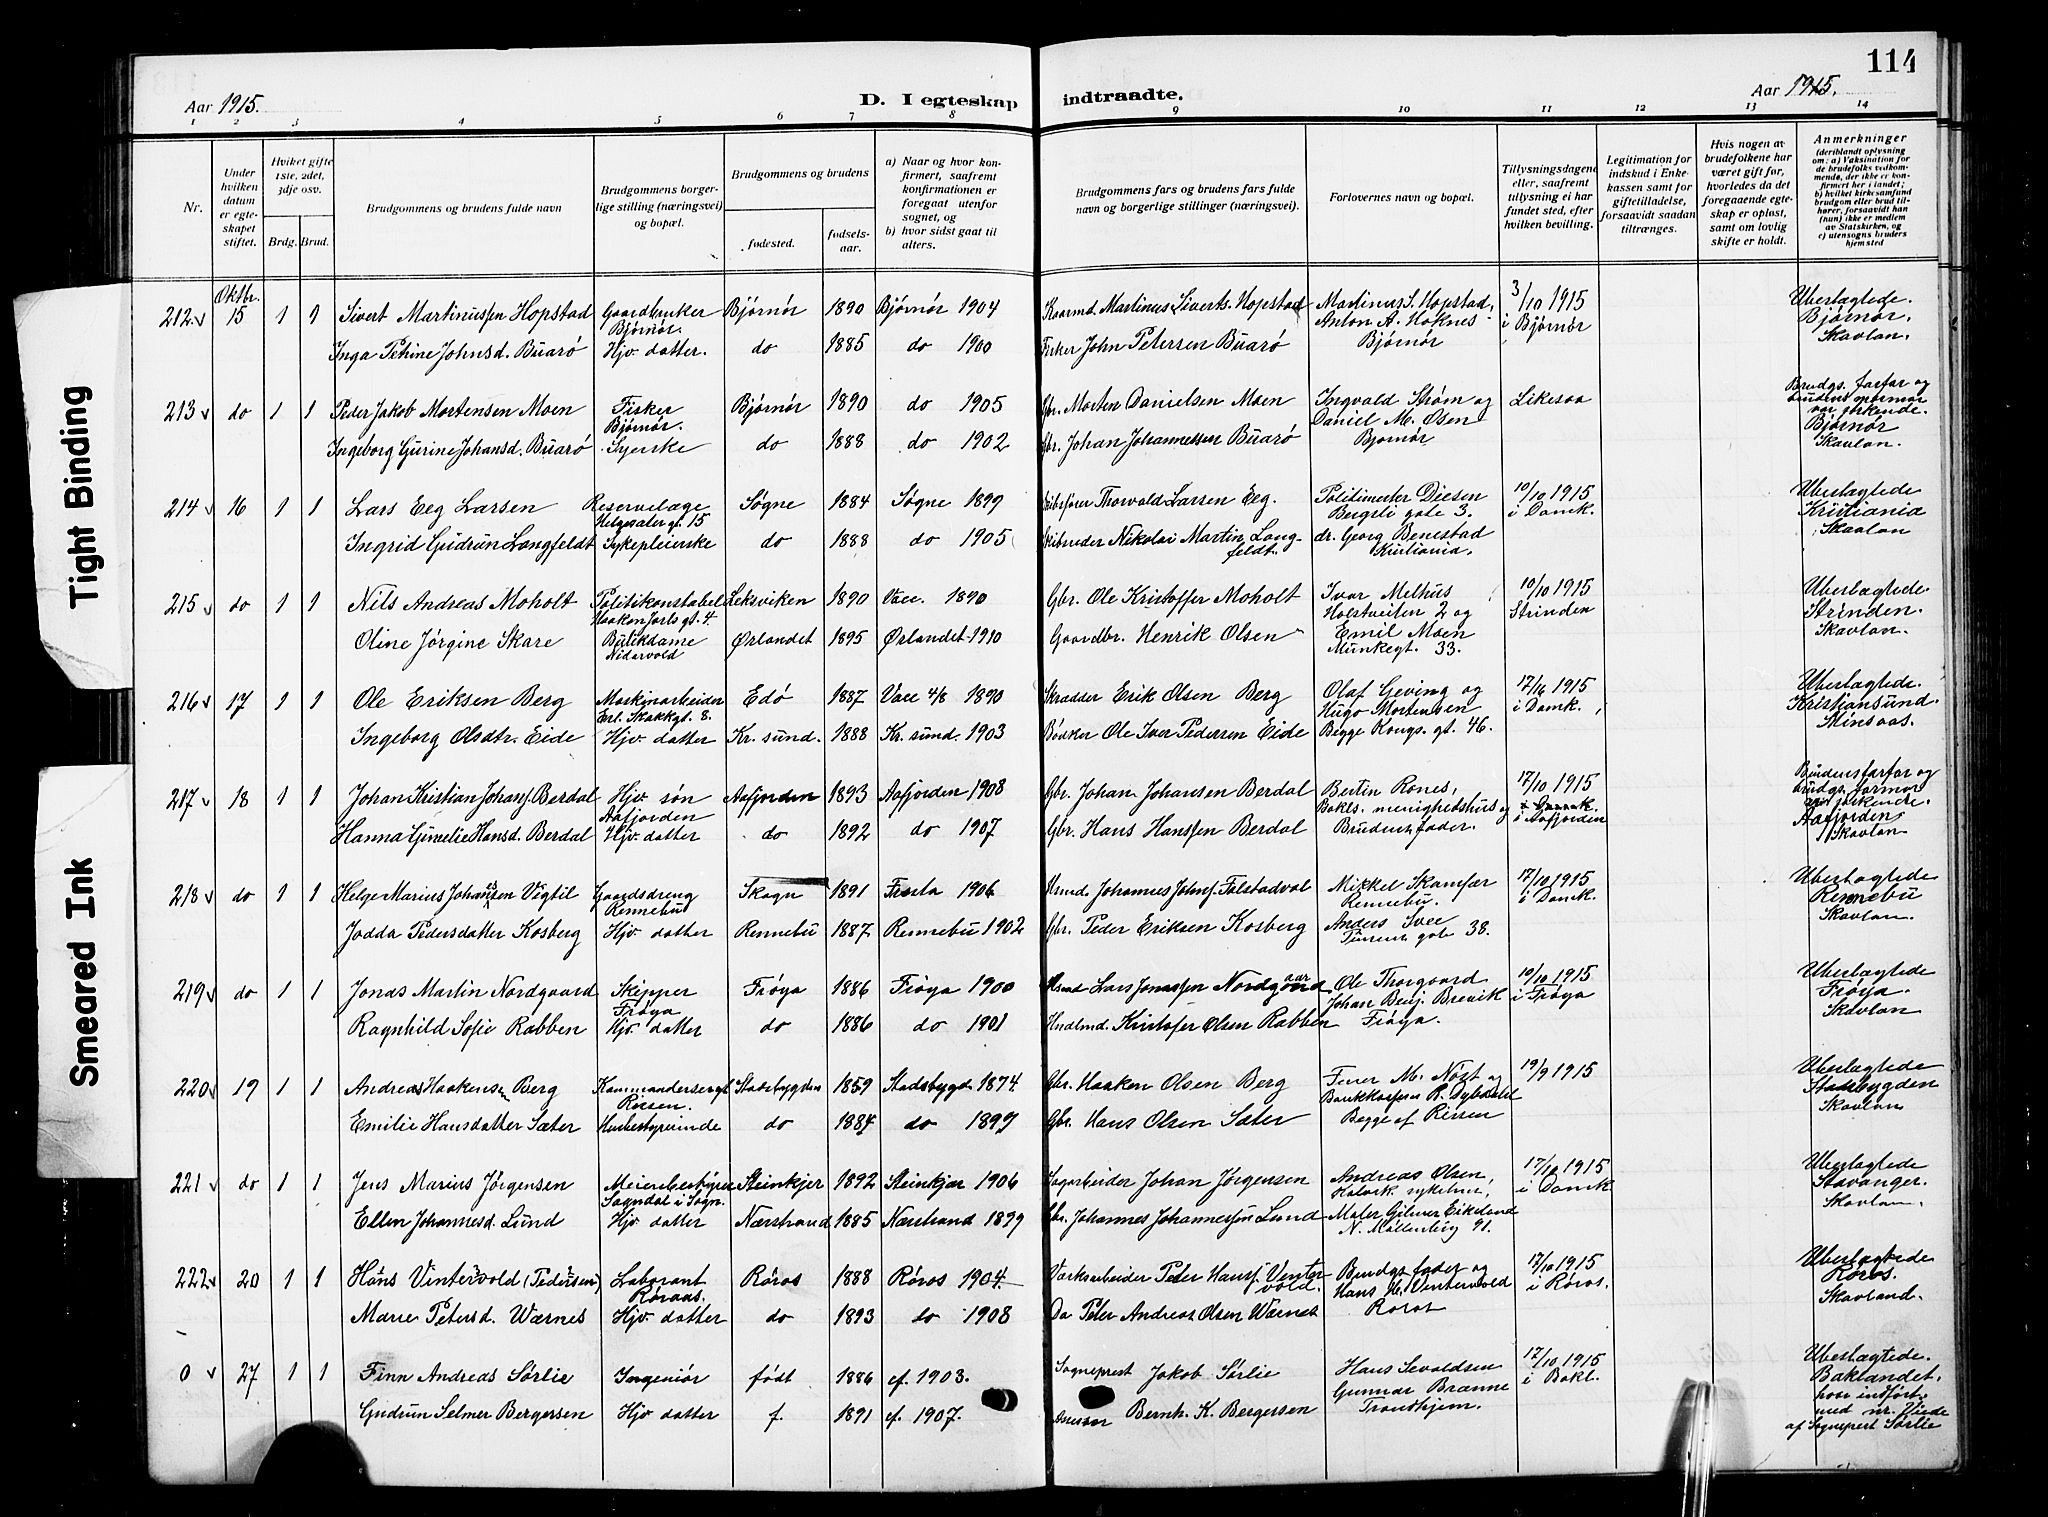 114
Aar 1915.
D. I egteskap indtraadte.
Aar 1915.
1 2 3 4 5 6 7 8 9 10 11 12 13 14
Nr.
Under hvilken datum er egteskapet stiftet.
Hvilket gifte 1ste, 2det, 3dje osv.
Brdg. Brud.
Brudgommens og brudens fulde navn
Brudgommens borgerlige stilling (næringsvei) og bopæl.
Brudgommens og brudens
fødested. fødselsaar.
a) Naar og hvor konfirmert, saafremt konfirmationen er foregaat utenfor sognet, og
b) hvor sidst gaat til alters.
Brudgommens fars og brudens fars fulde navn og borgerlige stillinger (næringsvei).
Forlovernes navn og bopæl.
Tillysningsdagene eller, saafremt tillysning ei har fundet sted, efter hvilken bevilling.
Legitimation for indskud i Enkekassen samt for giftetilladelse, forsaavidt saadan tiltrænges.
Hvis nogen av brudefolkene har været gift før, hvorledes da det foregaaende egteskap er opløst, samt om lovlig skifte er holdt.
Anmerkninger (deriblandt oplysning om: a) Vaksination for de brudefolks vedkommende, der ikke er konfirmert her i landet; b) hvilket kirkesamfund brudgom eller brud tilhører, forsaavidt han (hun) ikke er medlem av Statskirken, og c) utensogns bruders hjemsted
212 Oktbr. 15 1 1 Sivert Martinussen Hopstad Gaardbruker Bjørnør. Bjørnør 1890 Bjørnør 1904 Martinus Siverts. Hopstad Martinus S. Hopstad, Anton A. Høknes Bjørnør 3/10 1915 i Bjørnør Uberlagtede. Bjørnør. Skavlan.
Inga Petrine Johnsd. Buarø Hjv. datter. do 1885 do 1900 Fisker John Petersen Buarø
213 do 1 1 Peder Jakob Mortensen Moen Fisker Bjørnør. Bjørnør 1890 do 1905 Gbr. Morten Danielsen Moen Ingvald Strøm og Daniel M. Olsen Bjørnør Likesaa Brudgs. farfar og brudens mormor var søskende. Bjørnør Skavlan.
Ingeborg Gurine Johansd. Buarø Syerske do 1888 do 1902 Gbr. Johan Johannessen Buarø
214 16 1 1 Lars Eeg Larsen Reservelæge Helgesatergt. 15 Søgne 1884 Søgne 1899 Skibsfører Thorvald Larsen Eeg. Politimester Diesen Bergsli gate 3. 10/10 1915 i Domk. Uberlagtede Kristiania Skavlan
Ingrid Gudrun Langfeldt Sykepleierske do 1888 do 1905 Skibsreder Nikolai Martin Langfeldt. dr. Georg Benestad Kristiania.
215 do 1 1 Nils Andreas Moholt Politikonstabel Haakon Jarls gt. 4 Leksviken 1890 Vacc. 1890 Gbr. Ole Kristoffer Moholt Ivar Melhus Holstveiten 2 og 10/10 1915 Strinden Uberlagtede Strinden. Skavlan.
Oline Jørgine Skare Butikdame Nidarvold Ørlandet 1895 Ørlandet 1910 Gaardbr. Henrik Olsen Emil Moen Munkegt. 33.
216 17 1 1 Ole Eriksen Berg Maskinarbeider Erl. Skakkgt. 8. Edø 1887 Vacc 4/8 1890 Skrædder Erik Olsen Berg Olaf Geving og Hugo Mortensen 17/10 1915 i Domk. Uberlagtede. Kristiansund. Minsaas.
Ingeborg Olsdtr. Eide Hjv. datter Kr. sund. 1888 Kr. sund. 1903 Bødker Ole Iver Pedersen Eide Begge Kongs. gt. 46.
217 18 1 1 Johan Kristian Johans. Berdal Hjv. søn Aafjorden Aafjorden 1893 Aafjorden 1908 Gbr. Johan Johansen Berdal Bertin Rones, Bakls. menighetshus og 17/10 1915 i Aafjorden Brudens farfar og brudgs. farmor søskende. Aafjorden Skavlan
Hanna Gunelie Hansd. Berdal Hjv. datter do 1892 do 1907 Gbr. Hans Hanssen Berdal Brudens fader.
218 do 1 1 Helge Marius Johansen Vigtil Gaardsdreng Rennebu Skogn 1891 Frosta 1906 Johannes Johns. Falstadval Mikkel Skamfær Rennebu. 17/10 1915 i Domk. Uberlagtede Rennebu Skavlan.
Jodda Pedersdatter Kosberg Hjv. datter Rennebu 1887 Rennebu 1902 Gbr. Peder Eriksen Kosberg Anders Svee gate 38.
219 do 1 1 Jonas Martin Nordgaard Skipper Frøya Frøya 1886 Frøya 1900 Lars Jonassen Nordgaard Ole Thorgaard Johan Benj. Brevik 10/10 1915 i Frøya Uberlagtede Frøya. Skavlan
Ragnhild Sofie Rabben Hjv. datter do 1886 do 1901 Kristofer Olsen Rabben Frøya.
220 19 1 1 Andreas Haakensen Berg Kommandersergt. Rissen. Stadsbygden 1859 Stadsbygd 1874 Gbr. Haaken Olsen Berg Furer M. Nøst og 19/9 1915 Uberlagtede Stadsbygden Skavlan
Emilie Hansdatter Sæter Husbestyrerinde do 1884 do 1899 Gbr. Hans Olsen Sæter Begge af Rissen
221 do 1 1 Jens Marius Jørgensen Meieribestyrer Sogndal i Sogn. Steinkjer 1892 Steinkjer 1906 Sagarbeider Johan Jørgensen Andreas Olsen, 17/10 1915 i Domk Uberlagtede Stavanger. Skavlan.
Ellen Johannesd. Lund Hjv. datter Nærstrand 1885 Nærstrand 1899 Gbr. Johannes Johannessen Lund Maler Gilmer Eikeland N. Møllenberg 91.
222 20 1 1 Hans Vintervold (Pedersen) Laborant Røraas. Røros 1888 Røros 1904 Værksarbeider Peder Hans. Vintervold. Brudgs. fader og Hans H. Vintervold Røros 17/10 1915 i Røros. Uberlagtede Røros. Skavland.
Marie Petersd. Wærnes Hjv. datter do 1893 do 1908 Do Peter Andreas Olsen Wærnes
0 27 1 1 Finn Andreas Sørlie Ingeniør født 1886 cf. 1903. Sogneprest Jakob Sørlie Hans Sevaldsen Gunnar Brænne Trondhjem. 17/10 1915 i Bakl. Uberlagtede. Baklandet, hvor indført med nr. Viede af Sogneprest Sørlie
Gudrun Selmer Bergersen Hjv. datter f. 1891 cf. 1907. Bernh. K. Bergersen
Tight Binding
Smeared Ink